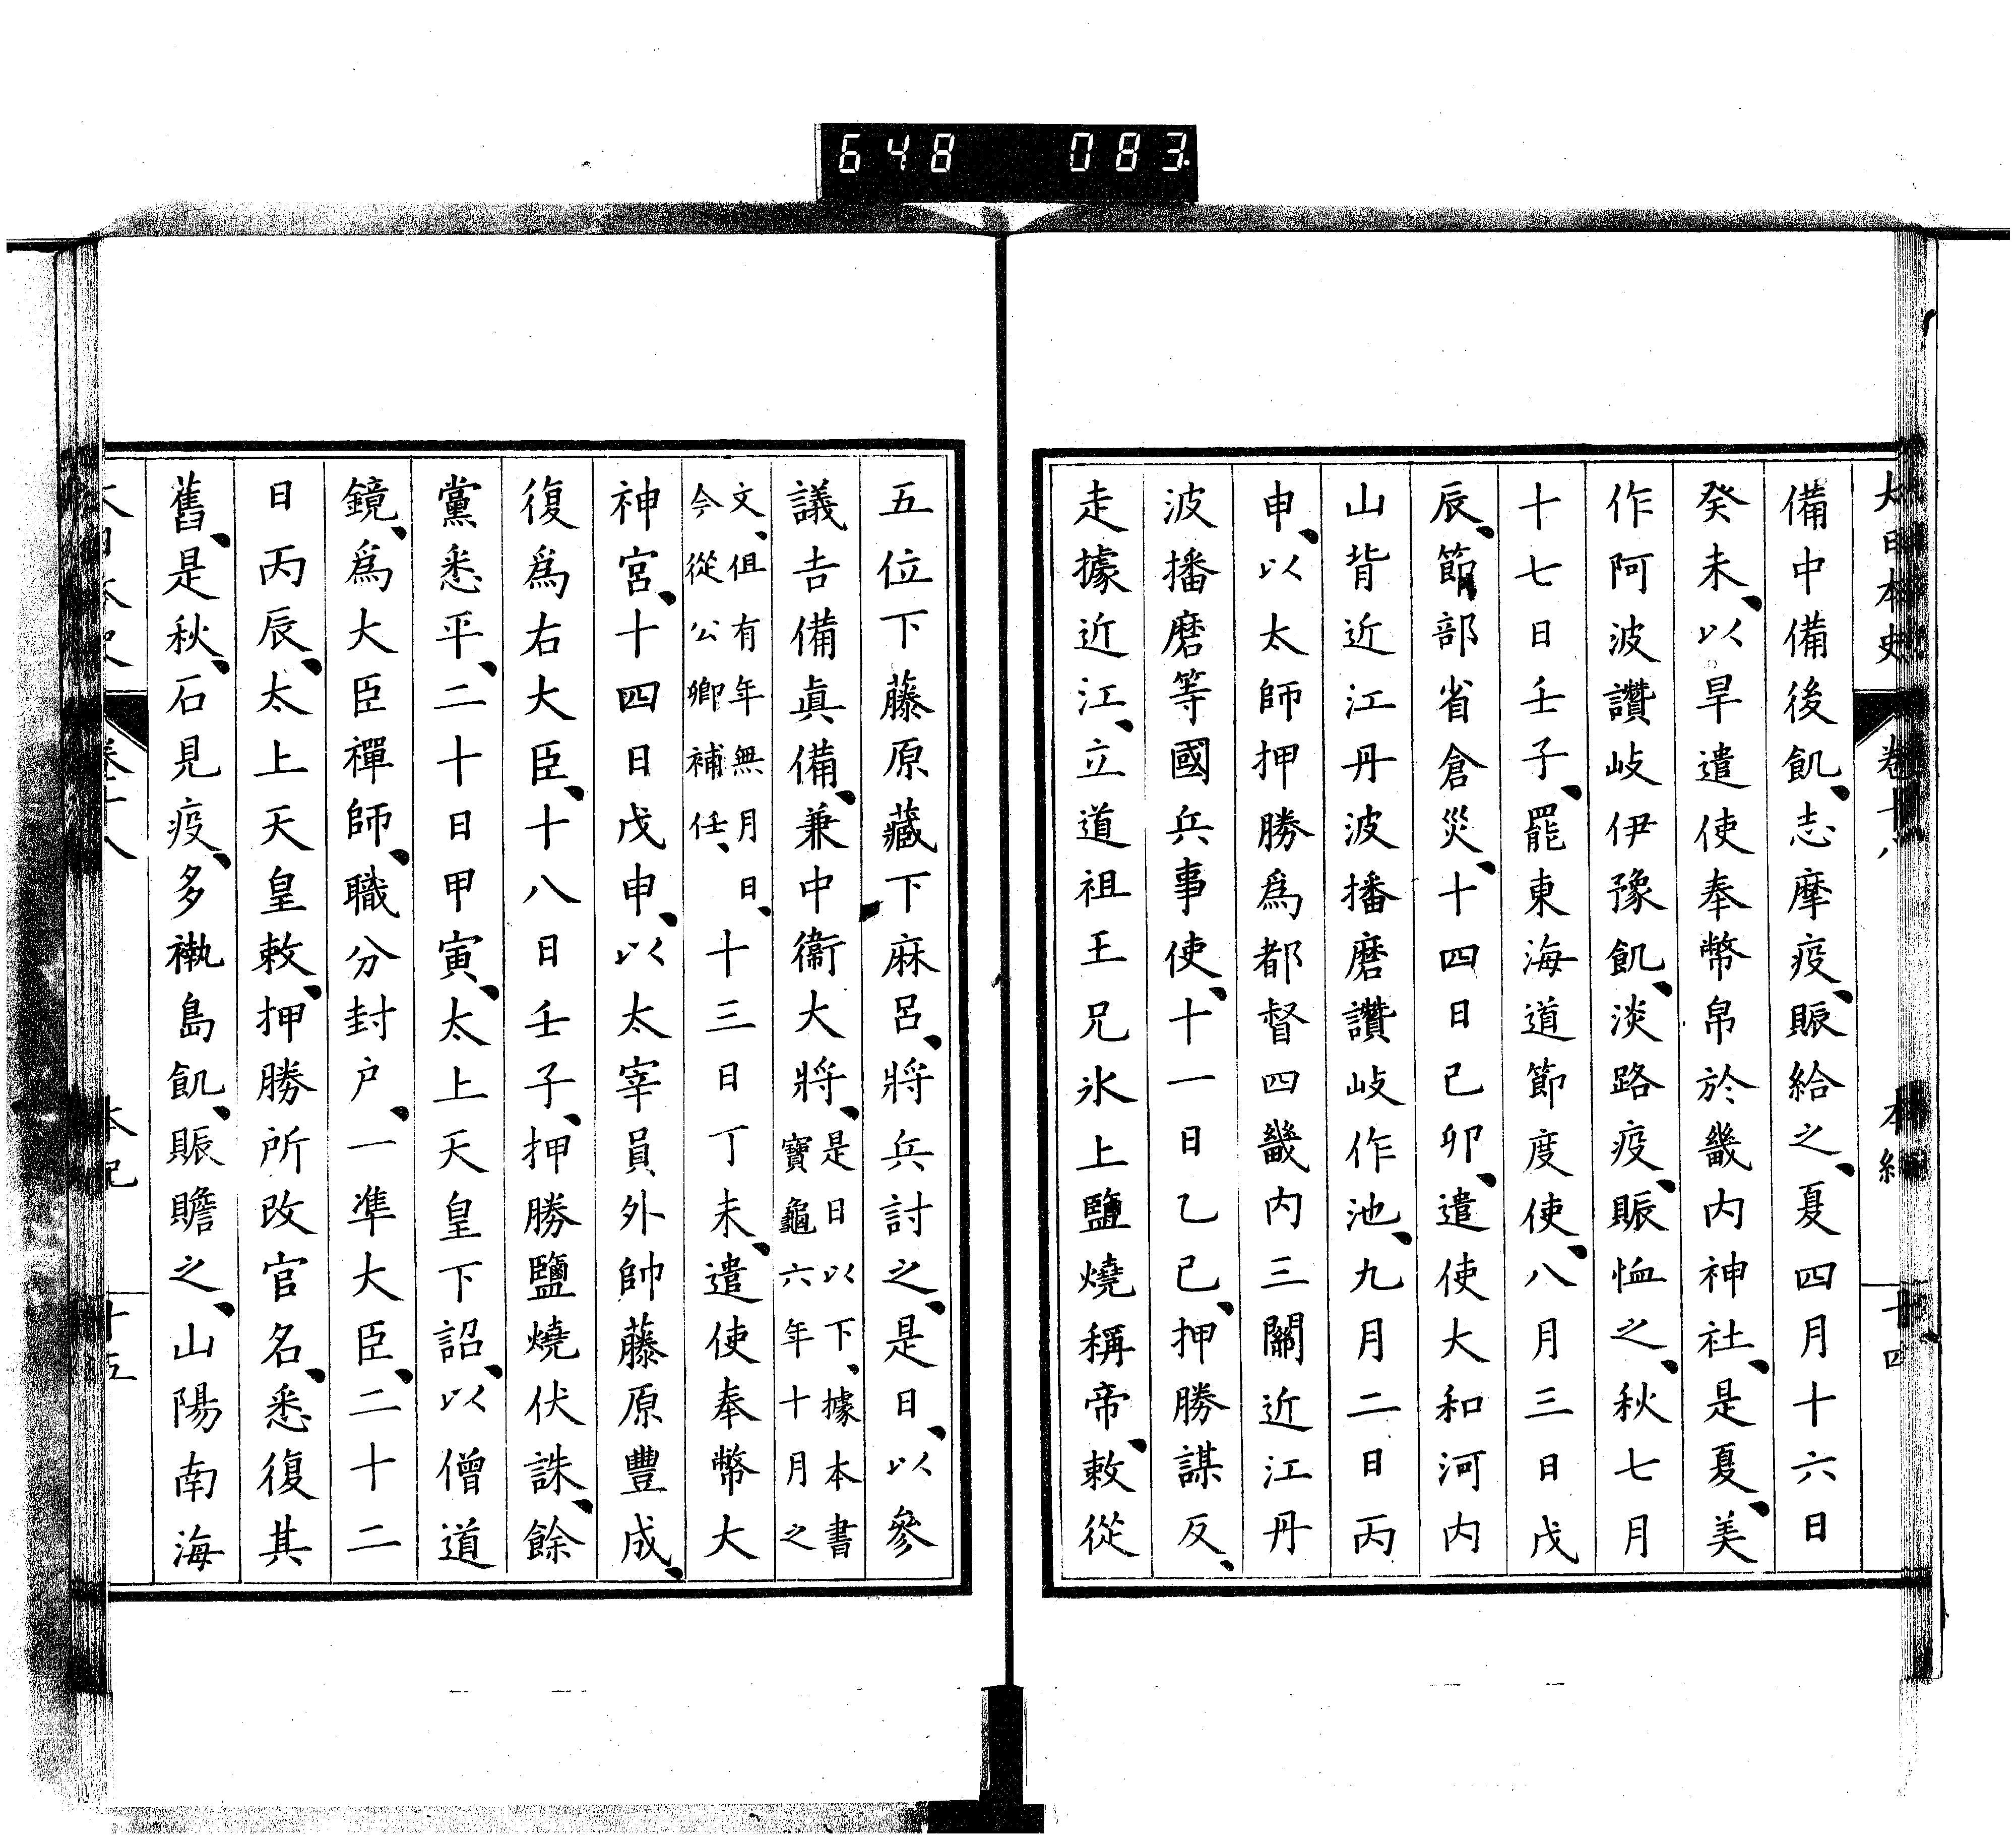 648 083
大日本史 卷十八 本紀 十四
備中備後飢、志摩疫、賑給之、夏四月十六日
癸未、以旱遣使奉幣帛於畿内神社、是夏、美
作阿波讚岐伊豫飢、淡路疫、賑恤之、秋七月
十七日壬子、罷東海道節度使、八月三日戊
辰、節部省倉災、十四日己卯、遣使大和河内
山背近江丹波播磨讚岐作池、九月二日丙
申、以太師押勝爲都督四畿内三關近江丹
波播磨等國兵事使、十一日乙巳、押勝謀反、
走據近江、立道祖王兄氷上鹽燒稱帝、敕從
五位下藤原藏下麻呂、將兵討之、是日、以參
議吉備眞備、兼中衞大將、是日以下、據本書
寶龜六年十月之
文、但有年無月日、
今從公卿補任、
十三日丁未、遣使奉幣大
神宮、十四日戊申、以太宰員外帥藤原豐成、
復爲右大臣、十八日壬子、押勝鹽燒伏誅、餘
黨悉平、二十日甲寅、太上天皇下詔、以僧道
鏡、爲大臣禪師、職分封戸、一準大臣、二十二
日丙辰、太上天皇敕、押勝所改官名、悉復其
舊、是秋、石見疫、多褹島飢、賑贍之、山陽南海
大日本史 卷十八 本紀 十五